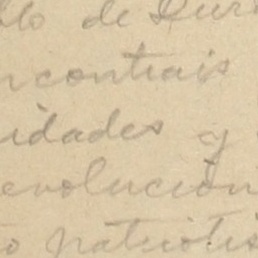 blo de Dur
ncontrais
idades y
evolución
o patrioti